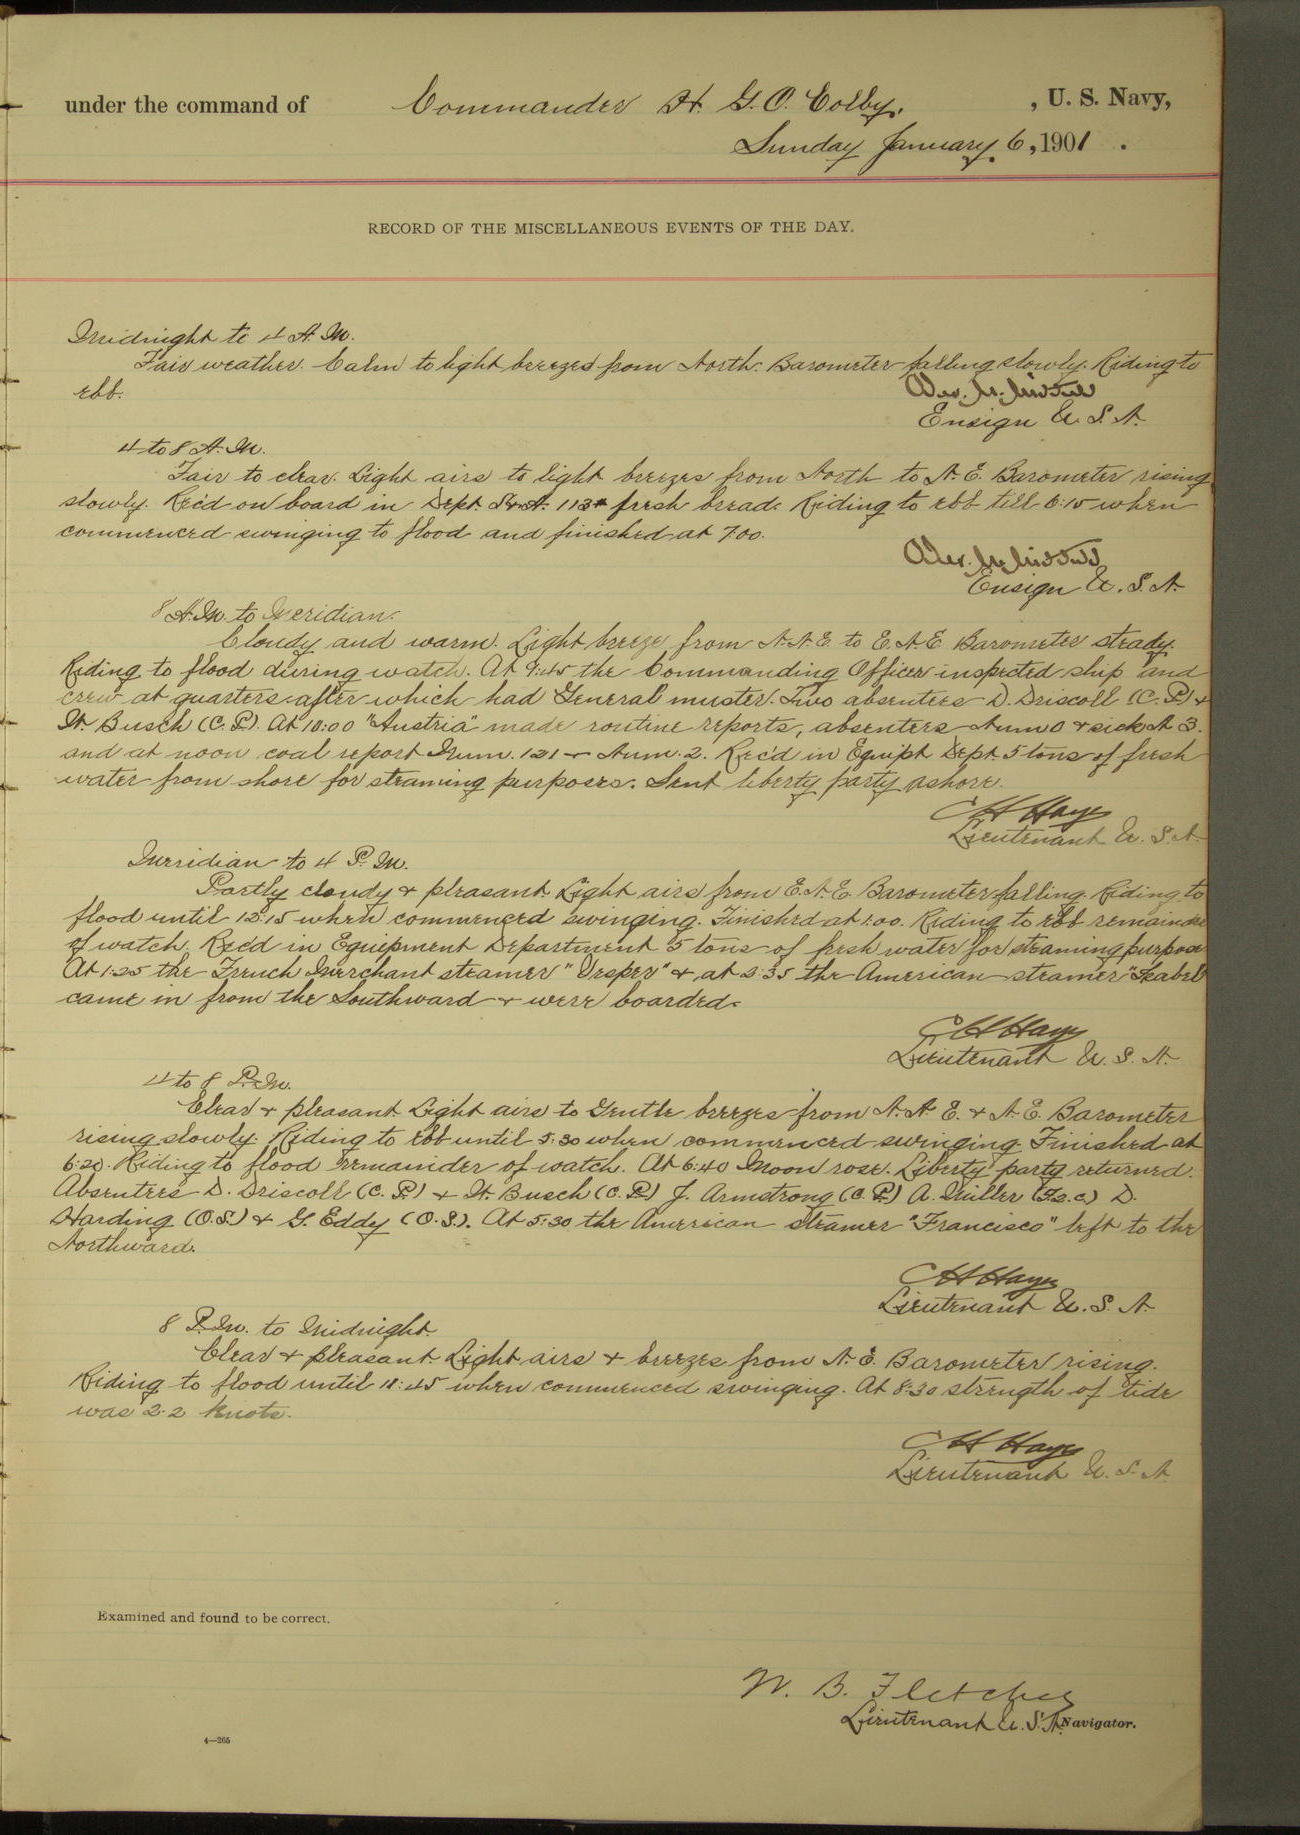 under the command of Commander H. G. O. Colby, , U. S. Navy,
Sunday January 6, 1901.
RECORD OF THE MISCELLANEOUS EVENTS OF THE DAY.
Midnight to 4 A. M.
Fair weather. Calm to light breezes from North. Barometer falling slowly. Riding to
ebb.
Ensign U. S. N.
4 to 8 A. M.
Fair to clear. Light airs to light breezes from North to N. E. Barometer rising
slowly. Rec'd on board in Dept. S & A. 113# fresh bread. Riding to ebb till 6:15 when
commenced swinging to flood and finished at 7.00.
Ensign U. S. N.
8 A. M. to Meridian.
Cloudy and warm. Light breeze from N. N. E. to E. N. E. Barometer steady.
Riding to flood during watch. At 9:45 the Commanding Officer inspected ship and
crew at quarters after which had General muster. Two absentees D. Driscoll (C. P.) &
H. Busch (C. P.). At 10:00 "Austria" made routine reports, absentees Num 0 & sick N 3.
and at noon coal report Num. 121 – Num. 2. Rec'd in Equipt Dept. 5 tons of fresh
water from shore for steaming purposes. Sent liberty party ashore.
C H Hayes
Lieutenant U. S. N.
Meridian to 4 P. M.
Partly cloudy & pleasant. Light airs from E. N. E. Barometer falling. Riding to
flood until 12:15 when commenced swinging. Finished at 1.00. Riding to ebb remainder
of watch. Rec'd in Equipment Department 5 tons of fresh water for steaming purpose
At 1:25 the French Merchant steamer "Vesper" & at 2:35 the American steamer "Isabel
came in from the Southward & were boarded.
C H Hayes
Lieutenant U. S. N.
4 to 8 P. M.
Clear & pleasant. Light airs to Gentle breezes from N. N. E. & N. E. Barometer
rising slowly. Riding to ebb until 5:30 when commenced swinging. Finished at
6:20. Riding to flood remainder of watch. At 6:40 Moon rose. Liberty party returned.
Absentees D. Driscoll (C. P.) & H. Busch (C. P.) J. Armstrong (C. P.) A. Miller D.
Harding (O. S.) & G. Eddy (O. S.). At 5:30 the American steamer "Francisco" left to the
Northward.
C H Hayes
Lieutenant U. S. N.
8 P. M. to Midnight.
Clear & pleasant. Light airs & breezes from N. E. Barometer rising.
Riding to flood until 11:45 when commenced swinging. At 8:30 strength of tide
was 2.2 knots.
C H Hayes
Lieutenant U. S. N.
Examined and found to be correct.
W. B. Fletcher
Lieutenant U. S. N. Navigator.
4—265